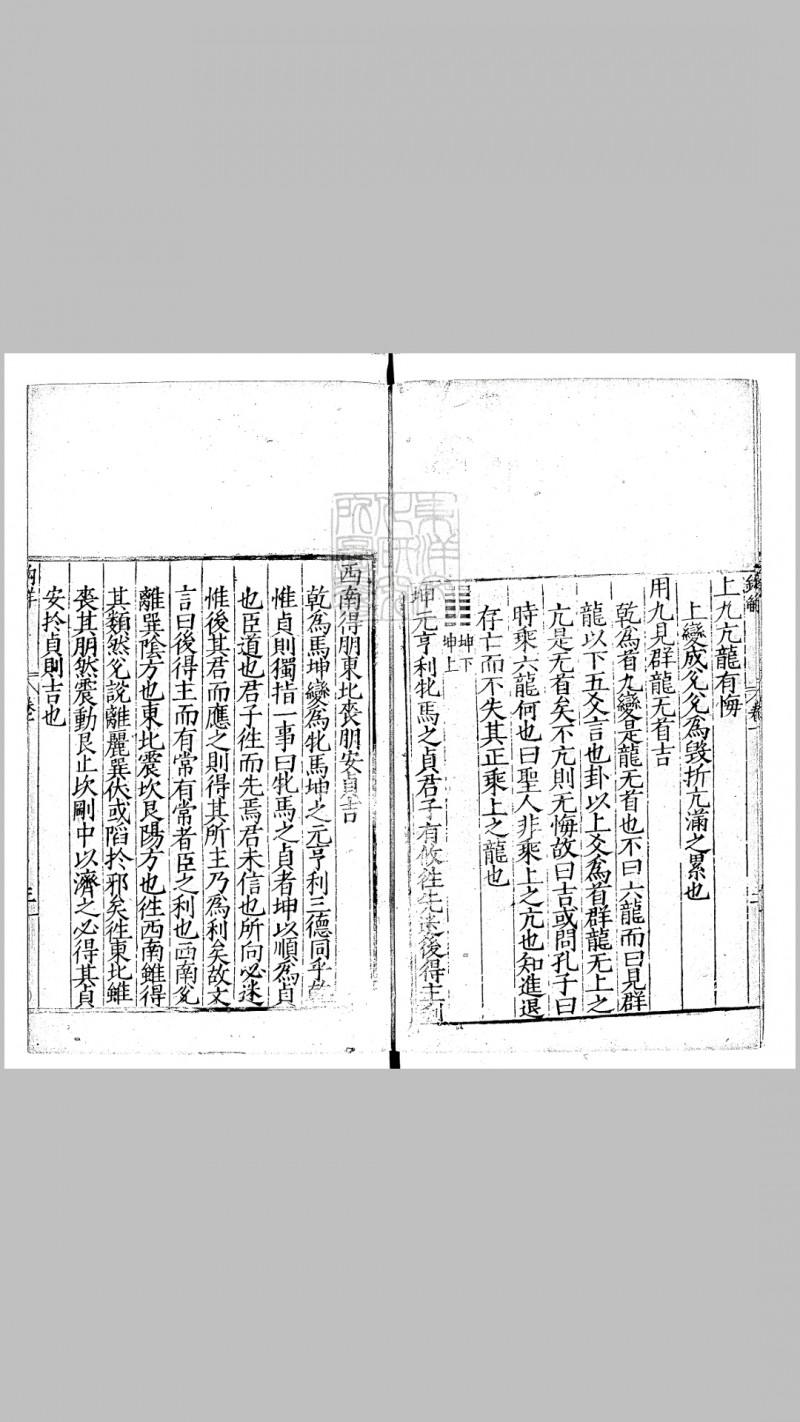 上九亢龍有悔
上變成兊兊為毀折亢滿之累也
用九見群龍无首吉
乾為首九變是龍无首也不曰六龍而曰見群
龍以下五爻言也卦以上爻為首群龍无上之
亢是无首矣不亢則无悔故曰吉或問孔子曰
時乘六龍何也曰聖人非乘上之亢也知進退
存亡而不失其正乘上之龍也
坤下
坤上
坤元亨利牝馬之貞君子有攸徃先迷後得主利
西南得朋東北喪朋安貞吉
乾為馬坤變為牝馬坤之元亨利三德同乎乾
惟貞則獨指一事曰牝馬之貞者坤以順為貞
也臣道也君子徃而先焉君未信也所向必迷
惟後其君而應之則得其所主乃為利矣故文
言曰後得主而有常有常者臣之利也西南兊
離巽陰方也東北震坎艮陽方也徃西南雖得
其類然兊說離麗巽伏或陷於邪矣徃東北雖
喪其朋然震動艮止坎剛中以濟之必得其貞
安於貞則吉也